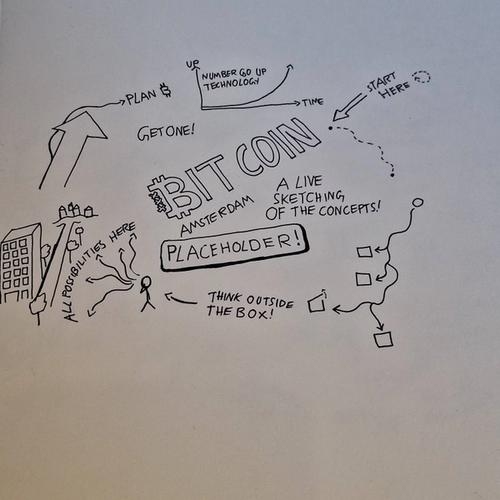 UP
NUMBER GO UP
TECHNOLOGY
TIME
PLAN ₿
START
HERE
GET ONE!
BITCOIN
AMSTERDAM
A LIVE
SKETCHING
OF THE CONCEPTS!
PLACEHOLDER!
ALL POSIBILITIES HERE
THINK OUTSIDE
THE BOX!